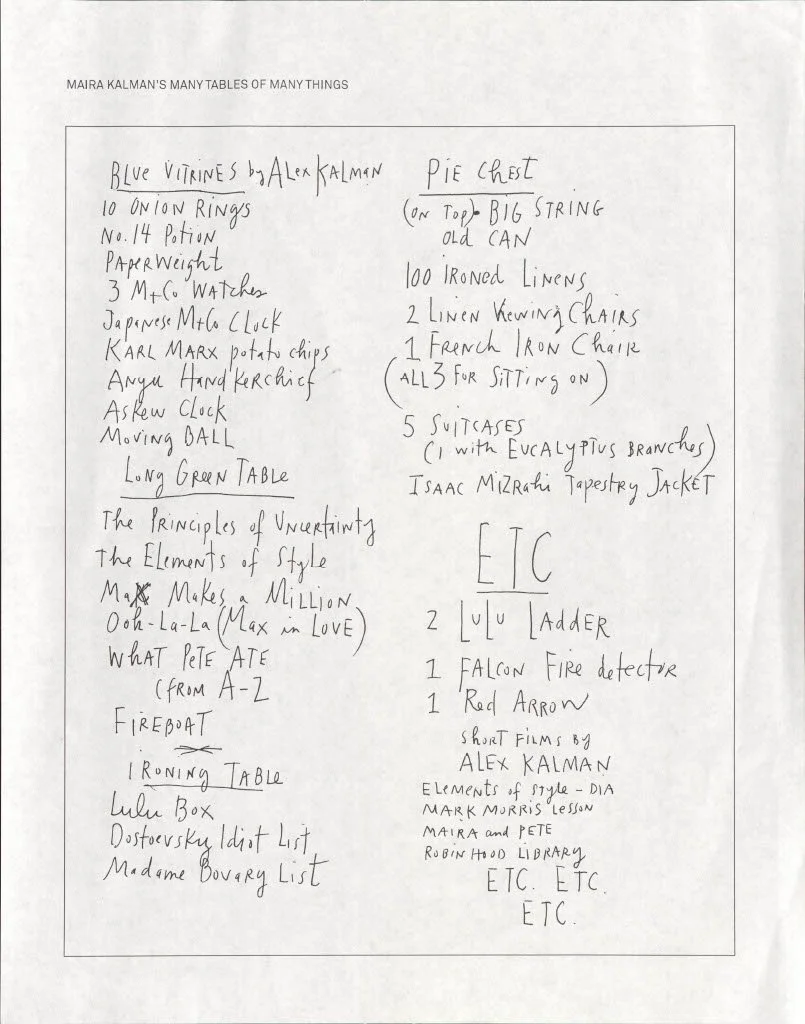 MAIRA KALMAN'S MANY TABLES OF MANY THINGS
BLUE VITRINES by ALEX KALMAN
10 ONION RINGS
No. 14 POTION
PAPERWEIGHT
3 M+Co WATCHES
JAPANESE M+Co CLOCK
KARL MARX potato chips
ANYU HANDKERCHIEF
ASKEW CLOCK
MOVING BALL
LONG GREEN TABLE
The PRINCIPLES of UNCERTAINTY
The ELEMENTS of STYLE
MAX MAKES a MILLION
Ooh-LA-LA (MAX in LOVE)
WHAT PETE ATE
(FROM A-Z
FIREBOAT
IRONING TABLE
LULU BOX
Dostoevsky Idiot List
Madame Bovary LIST
PIE CHEST
(ON TOP) • BIG STRING
OLD CAN
100 IRONED LINENS
2 LINEN VIEWING CHAIRS
1 FRENCH IRON CHAIR
(ALL 3 FOR SITTING ON)
5 SUITCASES
(1 with EUCALYPTUS BRANCHES)
ISAAC MIZRAHI TAPESTRY JACKET
ETC
2 LULU LADDER
1 FALCON FIRE detector
1 Red ARROW
SHORT FILMS BY
ALEX KALMAN
ELEMENTS of STYLE - DIA
MARK MORRIS LESSON
MAIRA and PETE
ROBIN HOOD LIBRARY
ETC. ETC.
ETC.